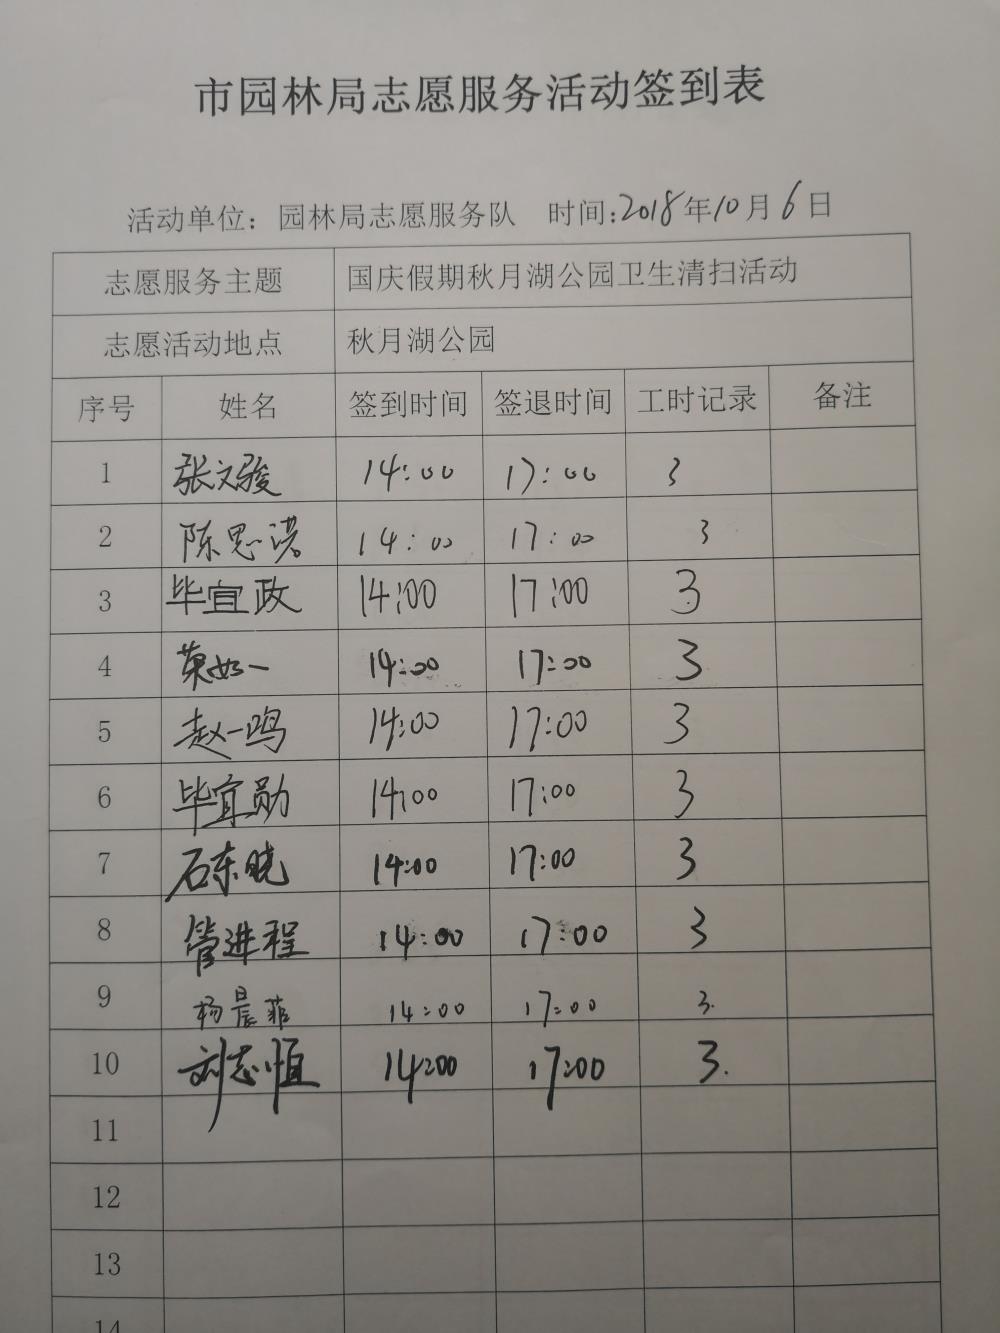 市园林局志愿服务活动签到表
活动单位：园林局志愿服务队 时间:2018年10月6日
志愿服务主题 国庆假期秋月湖公园卫生清扫活动
志愿活动地点 秋月湖公园
序号 姓名 签到时间 签退时间 工时记录 备注
1 张文骏 14:00 17:00 3
2 陈思 14:00 17:00 3
3 毕宜政 14:00 17:00 3
4 如一 14:00 17:00 3
5 赵一鸣 14:00 17:00 3
6 毕宜勋 14:00 17:00 3
7 石东晓 14:00 17:00 3
8 管进程 14:00 17:00 3
9 杨晨菲 14:00 17:00 3.
10 刘志恒 14:00 17:00 3.
11
12
13
14